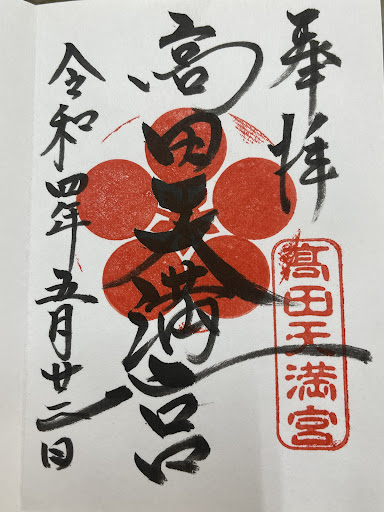 奉拝
高田天満宮
髙田天満宮
令和四年五月廿二日